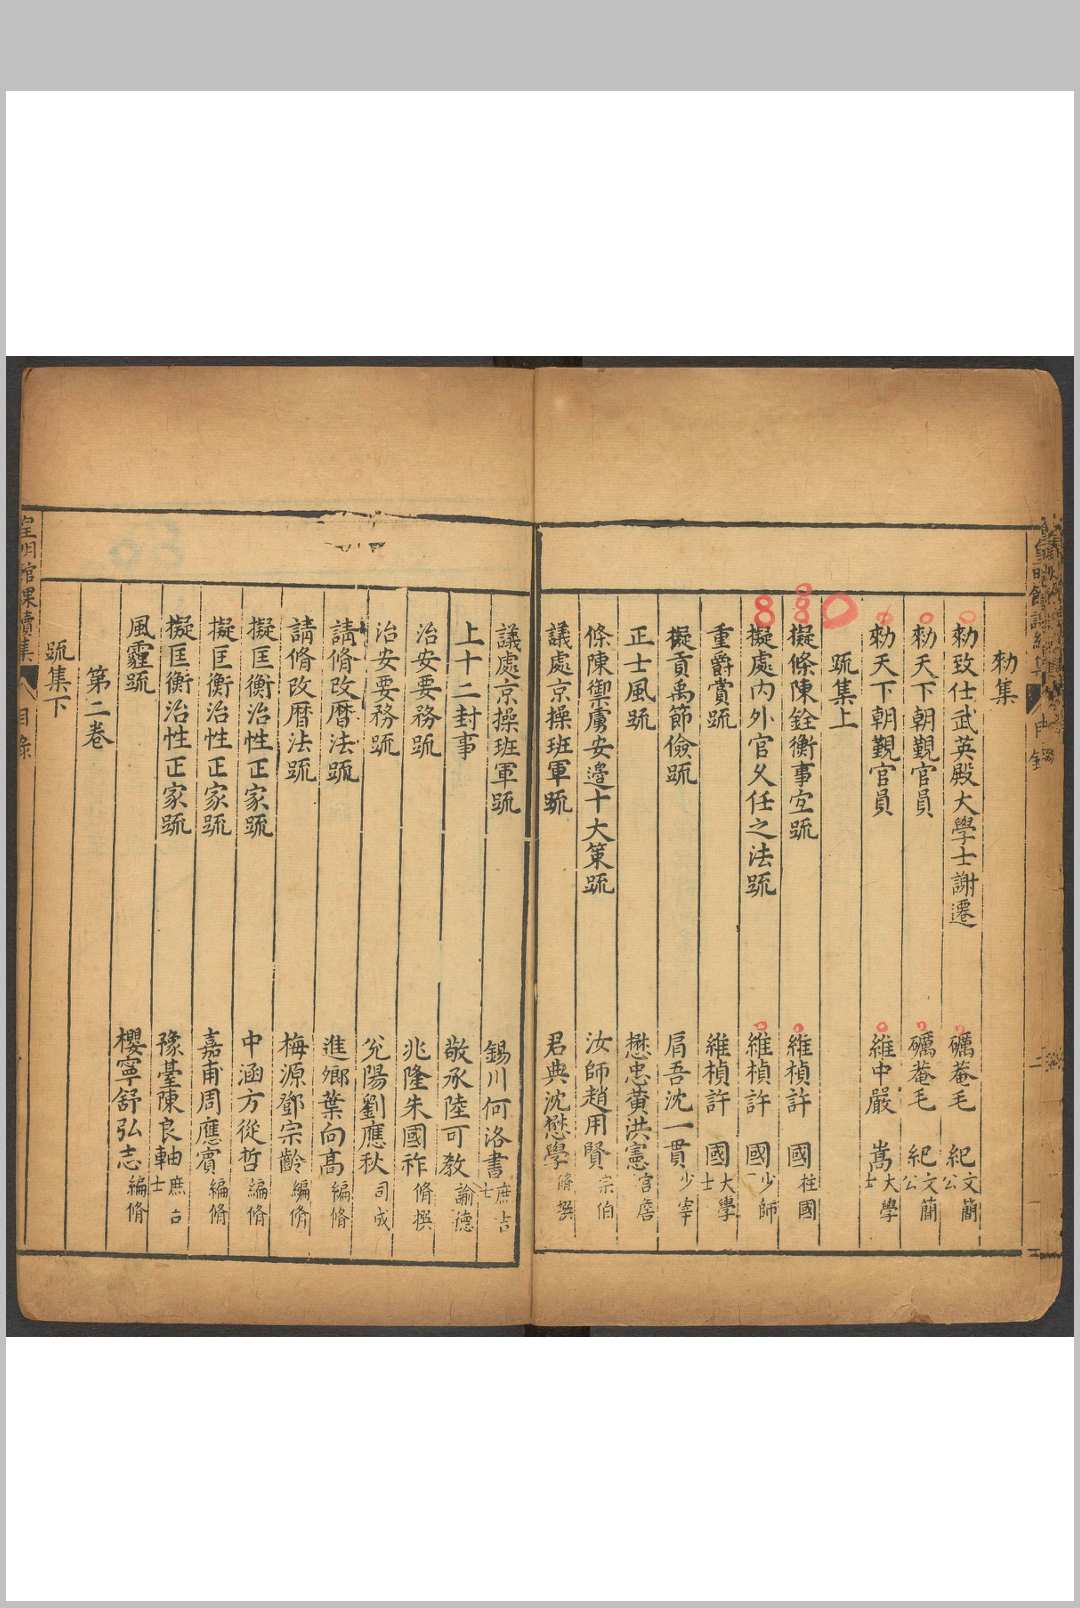 勑集
勑致仕武英殿大學士謝遷 礪菴毛 紀文簡公
勑天下朝覲官員 礪菴毛 紀文簡公
勑天下朝覲官員 維中嚴 嵩大學士
䟽集上
擬條陳銓衡事宜䟽 維楨許 國柱國
擬處內外官久任之法䟽 維楨許 國少師
重爵賞䟽 維楨許 國大學士
擬貢禹節儉䟽 肩吾沈一貫少宰
正士風䟽 懋忠黄洪憲宮詹
條陳禦虜安邉十大策䟽 汝師趙用賢宗伯
議處京操班軍䟽 君典沈懋學脩撰
議處京操班軍䟽 錫川何洛書庶吉士
上十二封事 敬承陸可教諭德
治安要務䟽 兆隆朱國祚脩撰
治安要務䟽 兊陽劉應秋司成
請脩改曆法䟽 進鄉葉向高編脩
請脩改曆法䟽 梅源鄧宗齡編脩
擬匡衡治性正家䟽 中涵方從哲編脩
擬匡衡治性正家䟽 嘉甫周應賔編脩
擬匡衡治性正家䟽 豫臺陳良軸庶吉士
風霾䟽 櫻寧舒弘志編脩
第二卷
䟽集下
皇明館課續集 目錄